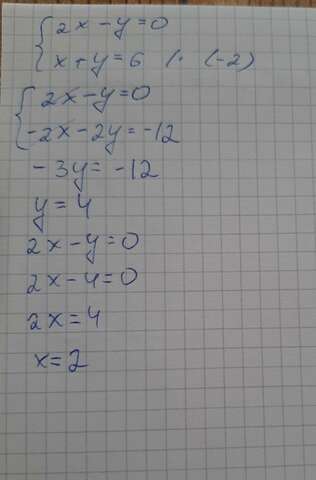 2x-y=0
x+y=6 /· (-2)
2x-y=0
-2x-2y=-12
-3y=-12
y=4
2x-y=0
2x-4=0
2x=4
x=2